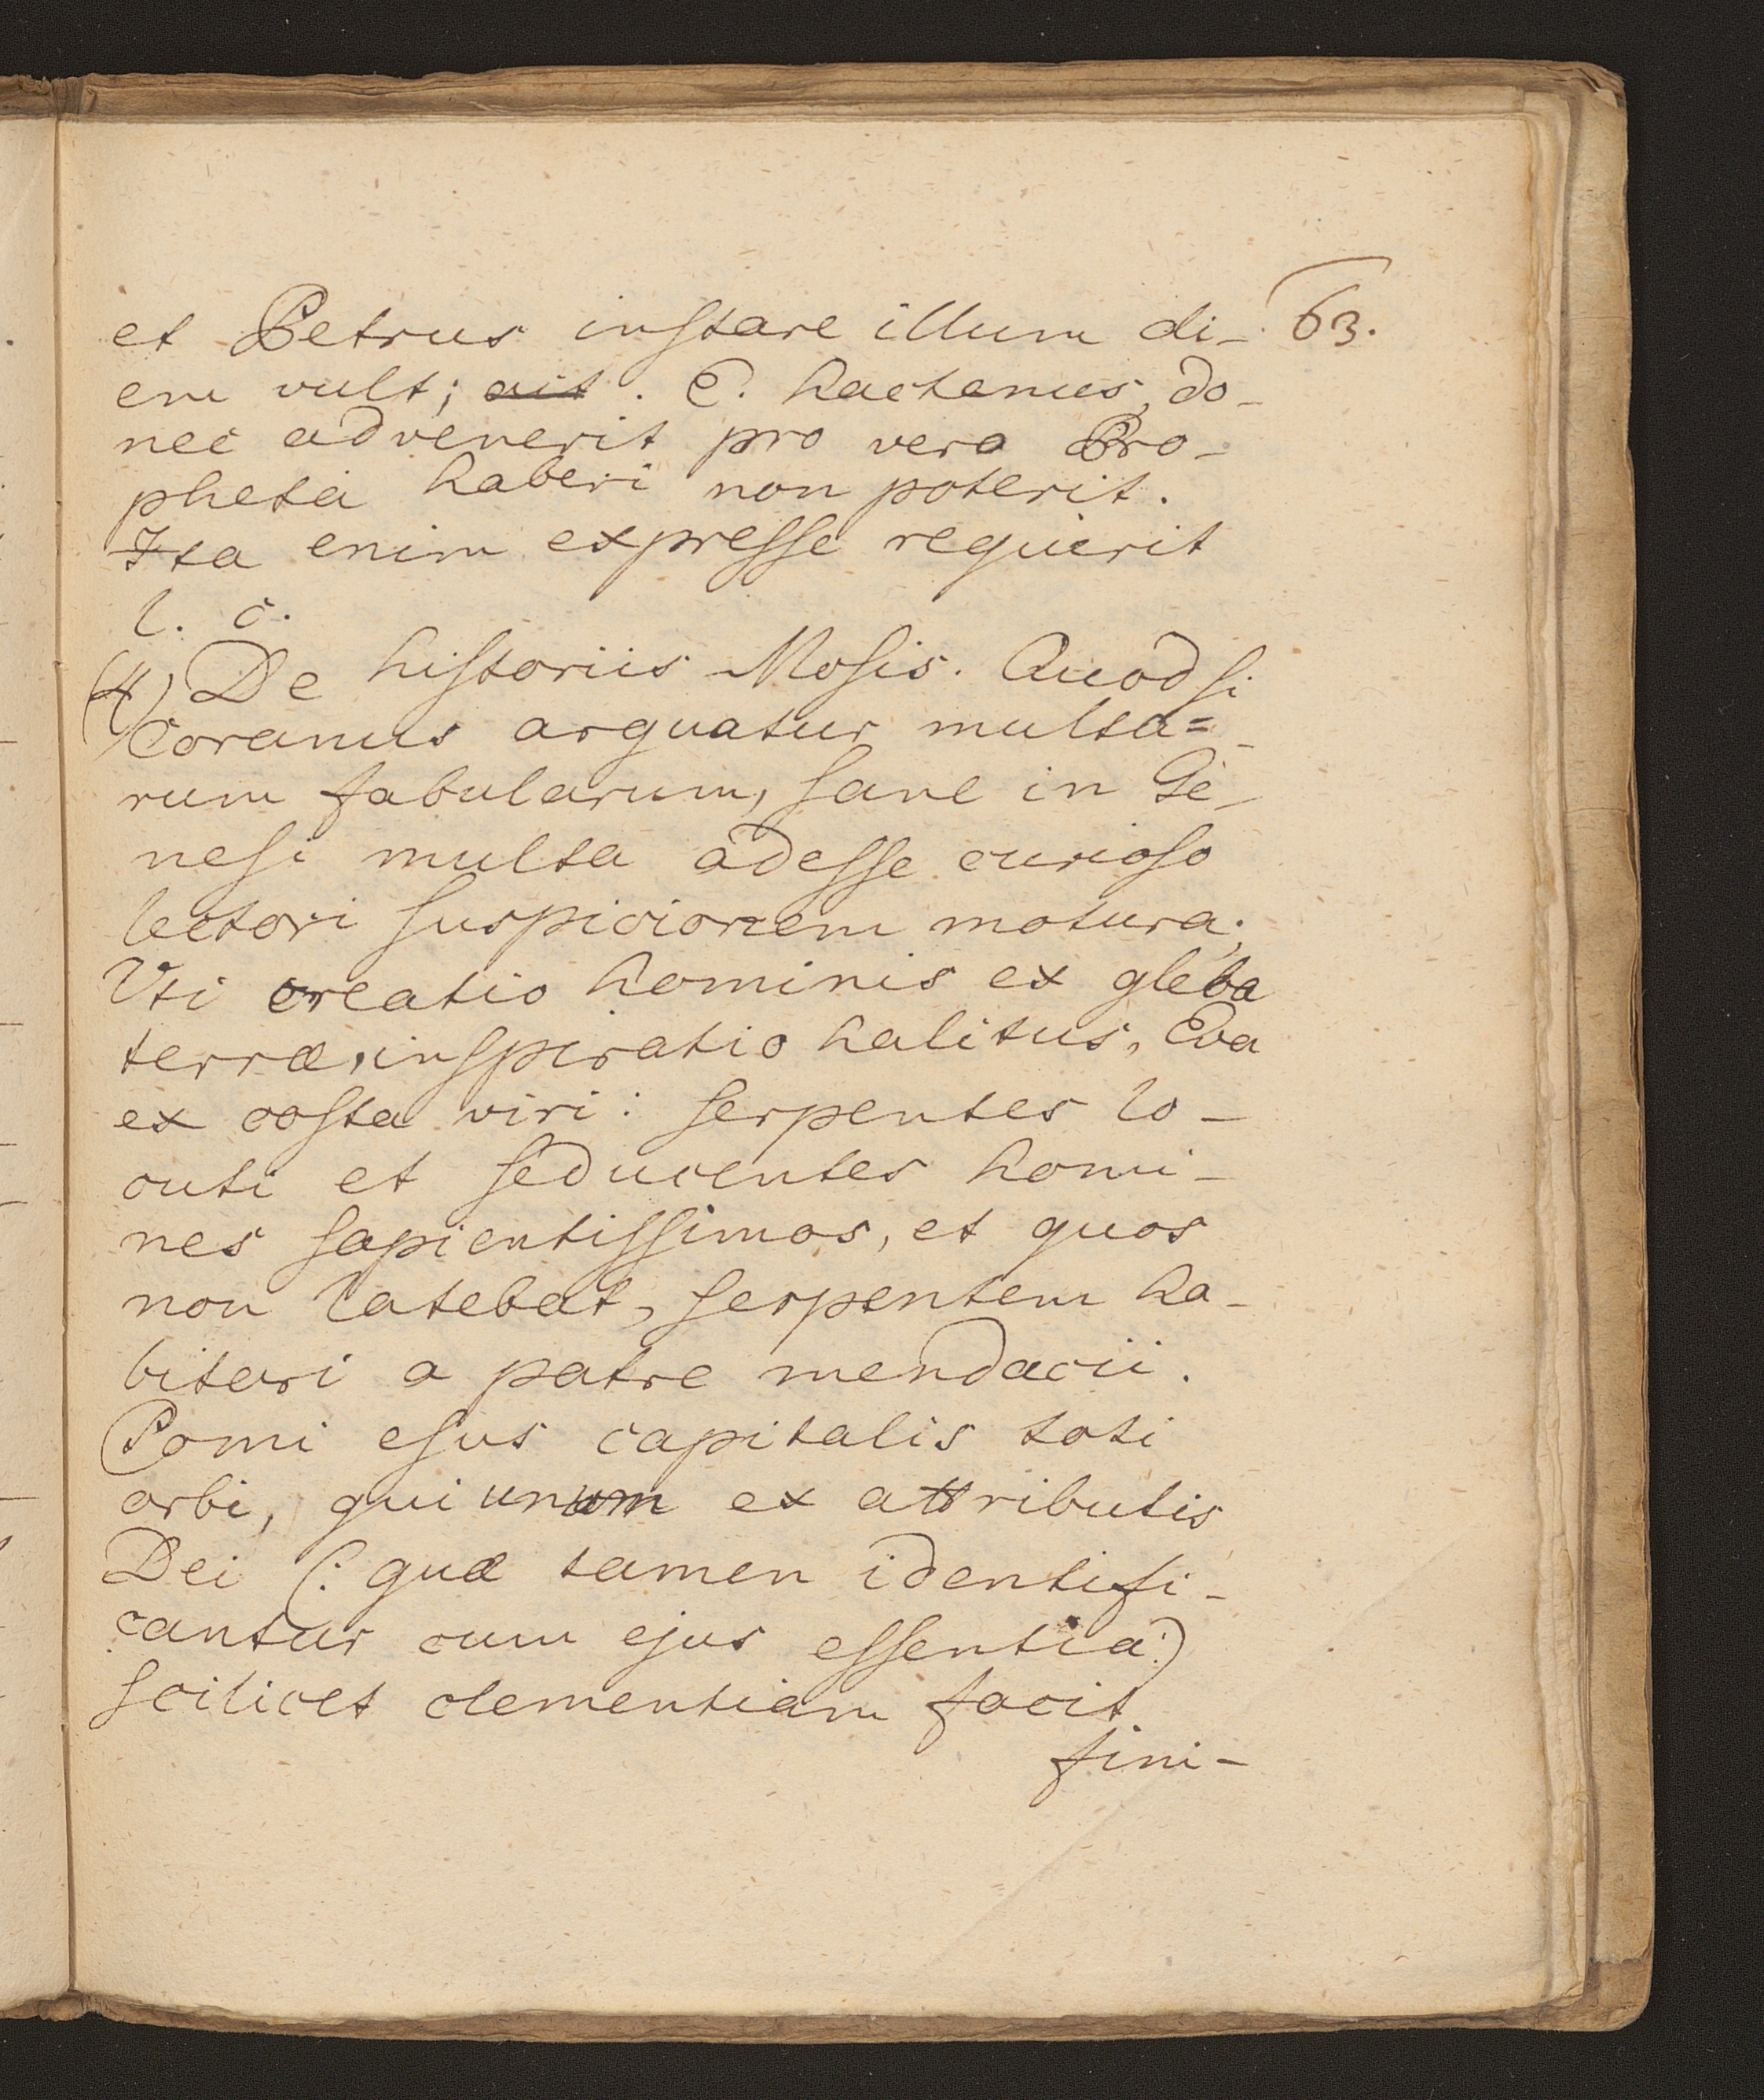 et Petrus inſtare illum di- 63.
em vult; ait. E. hactenus, do-
nec advenerit pro vero Pro-
pheta haberi non poterit.
Ita enim expreſſe requirit
l. c.
(4) De hiſtoriis Moſis. Quodſi
Coranus arguatur multa=
rum fabularum, ſane in Ge-
neſi multa adeſſe curioſo
lectori ſuspicionem motura;
Vti creatio hominis ex gleba
terræ, inſpiratio halitus, Eva
ex coſta viri: ſerpentes lo-
cuti et ſeducentes homi-
nes ſapientiſſimos, et quos
non latebat, ſerpentem ha-
bitari a patre mendacii.
Pomi eſus capitalis toti
orbi, qui unum ex attributis
Dei (: quæ tamen identifi-
cantur cum ejus eſſentia:)
ſcilicet clementiam facit
fini-